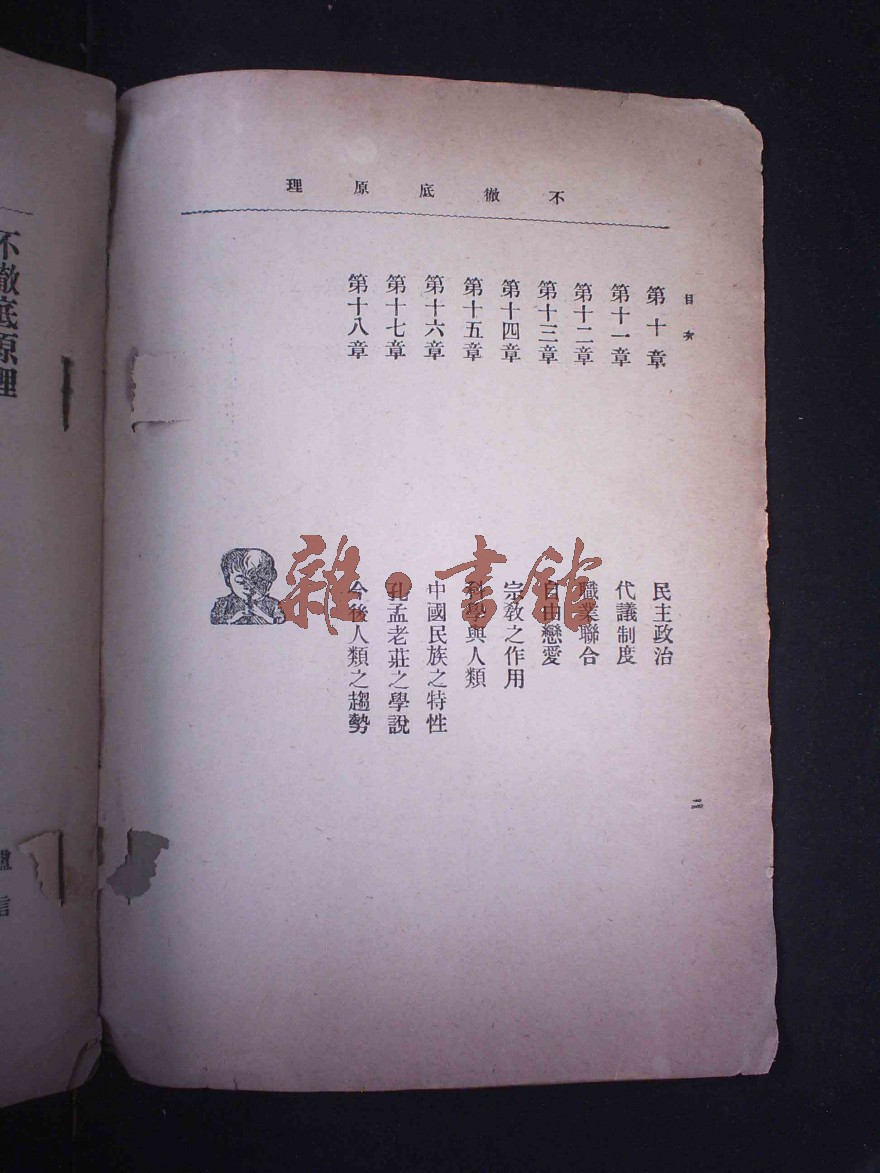 不徹底原理
目次
第十章 民主政治
第十一章 代議制度
第十二章 職業聯合
第十三章 自由戀愛
第十四章 宗教之作用
第十五章 科學與人類
第十六章 中國民族之特性
第十七章 孔孟老莊之學說
第十八章 今後人類之趨勢
二
雜·書館
不徹底原理